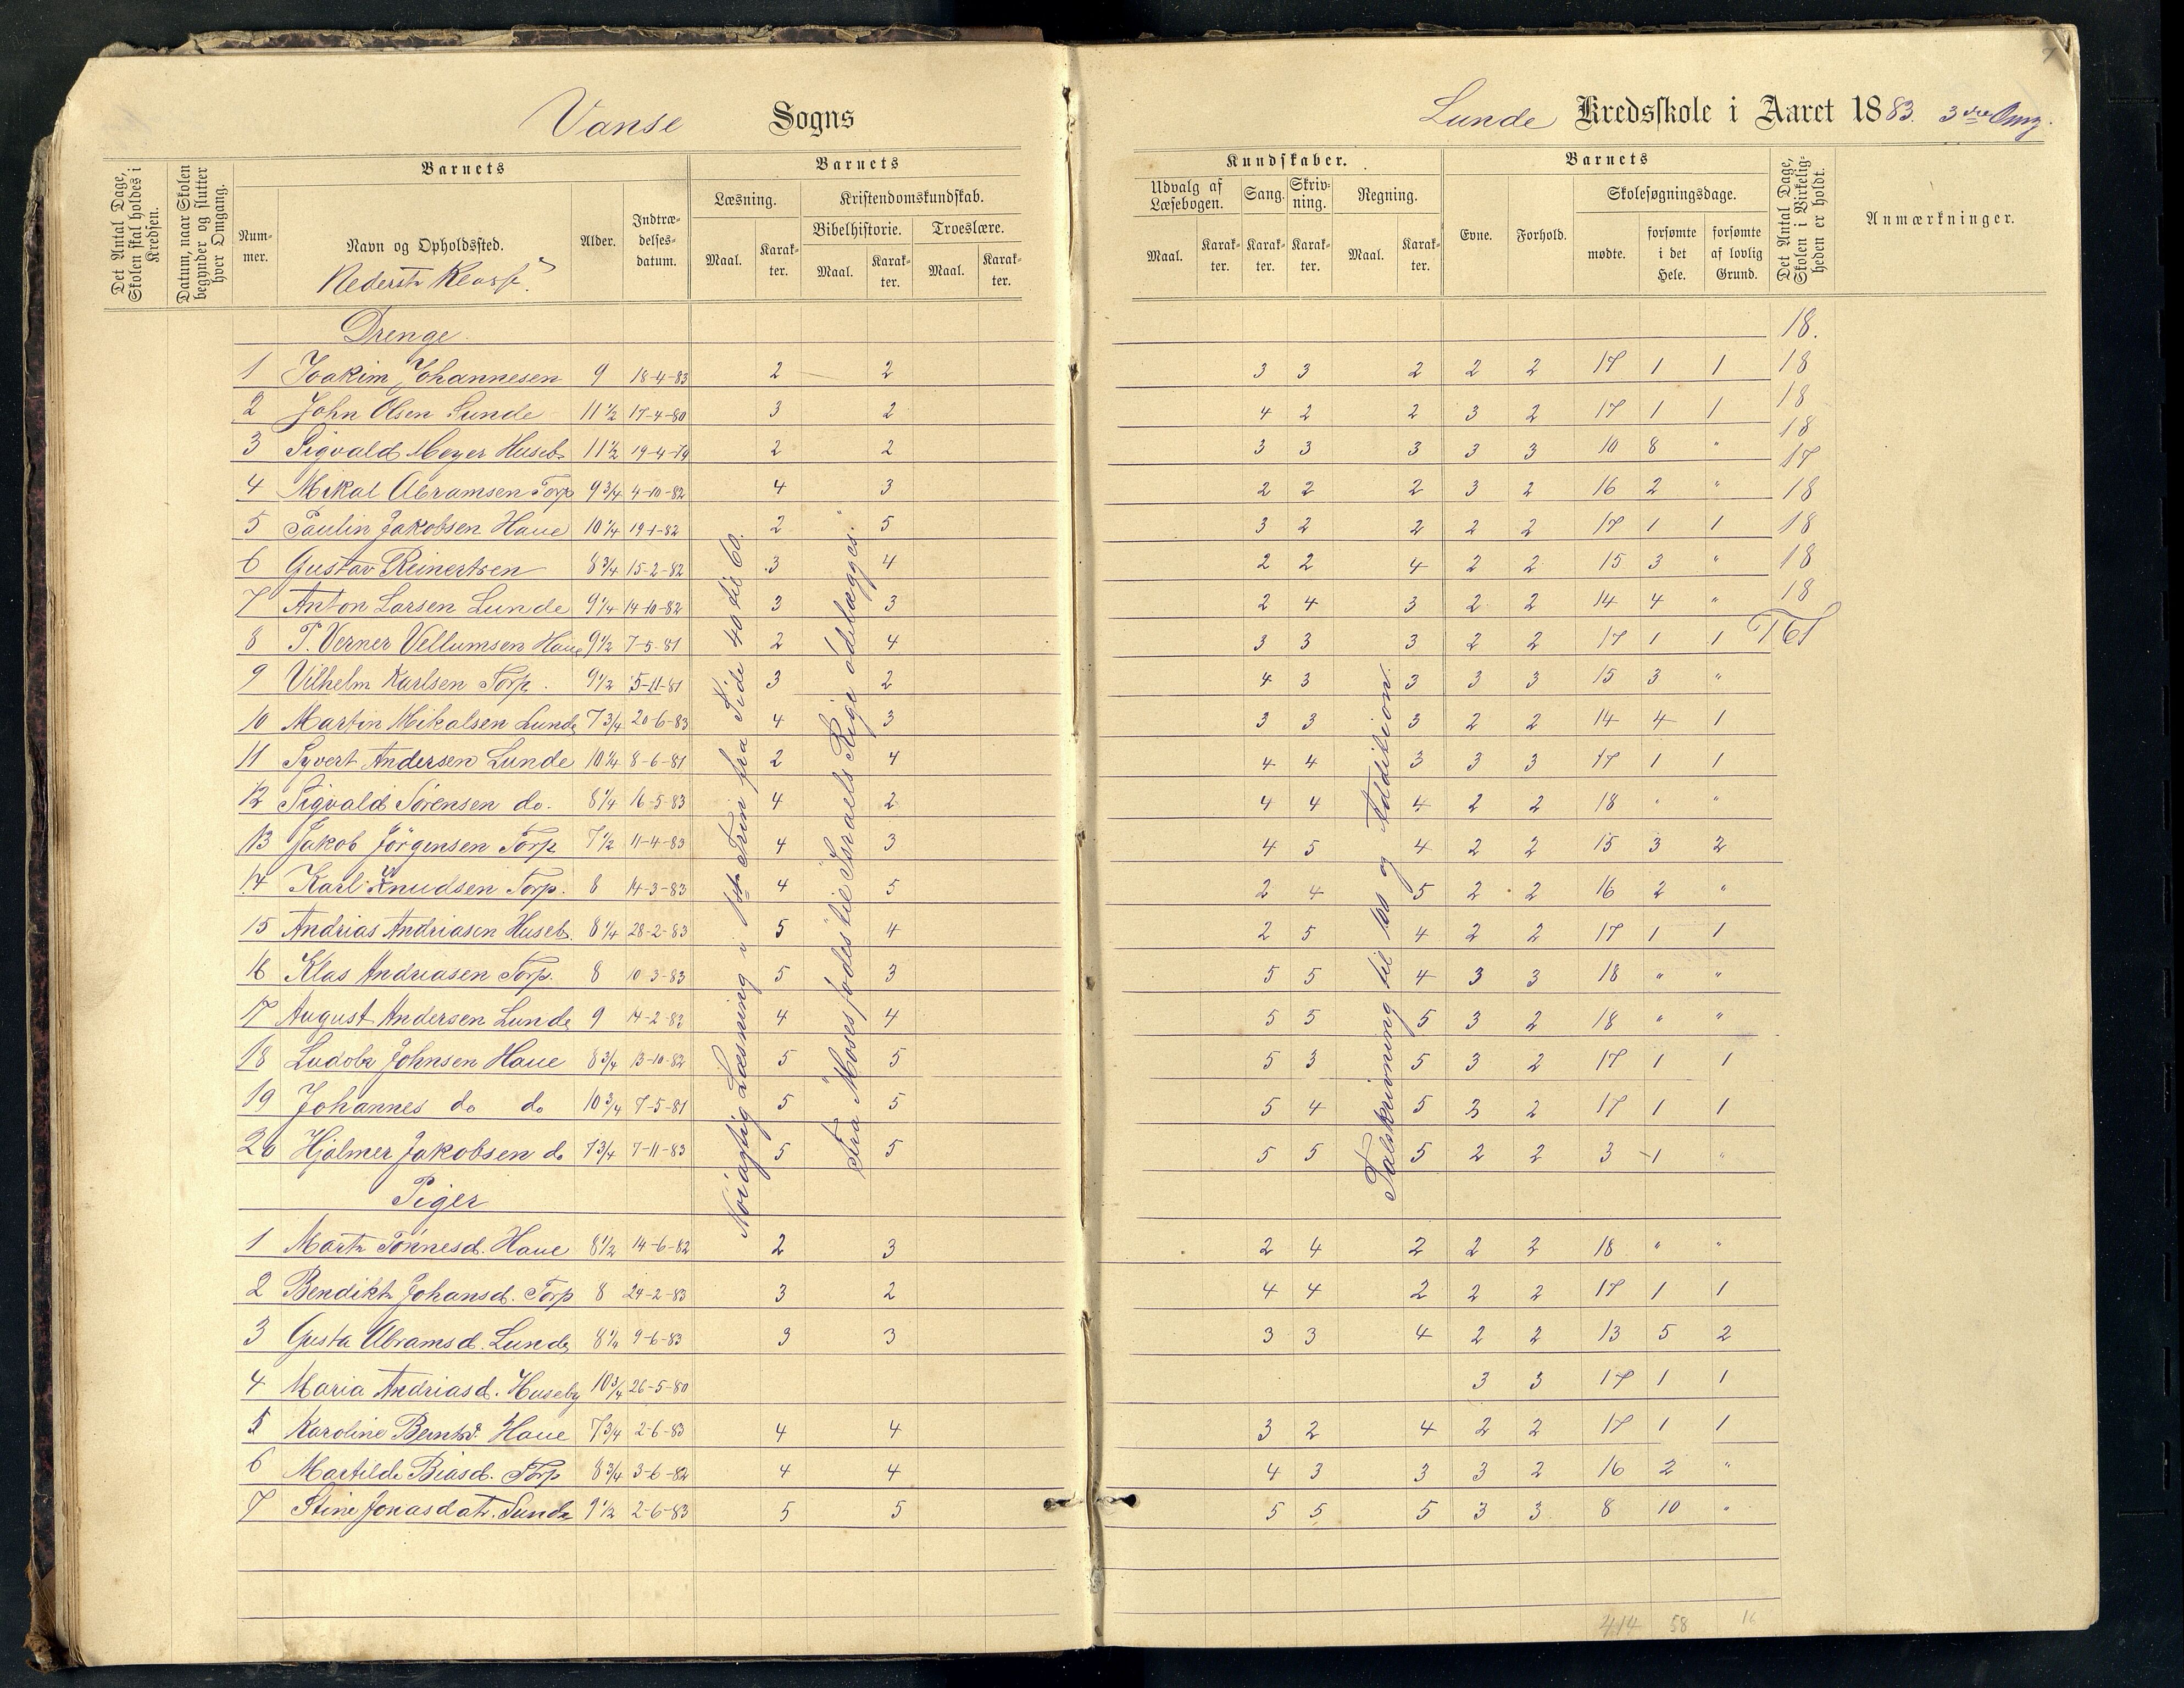 Vanse Sogns
Lunde Kredsskole i Aaret 1883. 3die Omg.
7
Det Antal Dage, Skolen skal holdes i Kredsen.
Datum, naar Skolen begynder og slutter hver Omgang.
Barnets
Num-mer.
Navn og Opholdssted.
Nederste Klasse
Alder.
Indtræ-delses-datum.
Barnets
Læsning.
Maal.
Karak-ter.
Kristendomskundskab.
Bibelhistorie.
Maal.
Karak-ter.
Troeslære.
Maal.
Karak-ter.
Kundskaber.
Udvalg af Læsebogen.
Maal.
Karak-ter.
Sang.
Karak-ter.
Skriv-ning.
Karak-ter.
Regning.
Maal.
Karak-ter.
Barnets
Evne.
Forhold.
Skolesøgningsdage.
mødte.
forsømte i det Hele.
forsømte af lovlig Grund.
Det Antal Dage, Skolen i Virkelig-heden er holdt.
Anmærkninger.
Drenge
1 Joakim Johannesen 9 18-4-83 2 2 3 3 2 2 2 17 1 1
2 John Olsen Lunde 11 1/2 17-4-80 3 2 4 2 2 3 2 17 1 1
3 Sigvald Meyer Huseb 11 1/2 19-4-79 2 2 3 3 3 3 3 10 8 "
4 Mikal Abramsen Torp 9 3/4 4-10-82 4 3 2 2 2 3 2 16 2 "
5 Paulin Jakobsen Haue 10 1/4 19-1-82 2 5 3 2 2 2 2 17 1 1
6 Gustav Reinertsen 8 3/4 15-2-82 3 4 2 2 4 2 2 15 3 "
7 Anton Larsen Lunde 9 1/4 14-10-82 3 3 2 4 3 2 2 14 4 "
8 T. Verner Vellumsen Haue 9 1/2 7-5-81 2 4 3 3 3 2 2 17 1 1
9 Vilhelm Karlsen Torp. 9 1/2 5-11-81 3 2 4 3 3 3 3 15 3 "
10 Martin Mikalsen Lunde 7 3/4 20-6-83 4 3 3 3 3 2 2 14 4 1
11 Syvert Andersen Lunde 10 1/4 8-6-81 2 4 4 4 3 3 3 17 1 1
12 Sigvald Sørensen do. 8 1/4 16-5-83 4 2 4 4 4 2 2 18 " "
13 Jakob Jörgensen Torp 7 1/2 11-4-83 4 3 4 5 4 2 2 15 3 2
14 Karl Knudsen Torp. 8 14-3-83 4 5 2 4 5 2 2 16 2 "
15 Andrias Andriasen Huseb. 8 1/4 28-2-83 5 4 2 5 4 2 2 17 1 1
16 Klas Andreasen Torp. 8 10-3-83 5 3 5 5 4 3 3 18 " "
17 August Andersen Lunde 9 14-2-82 4 4 5 5 5 3 2 18 " "
18 Ludolv Johnsen Haue 8 3/4 13-10-82 5 5 5 3 5 3 2 17 1 1
19 Johannes do do 10 3/4 7-5-81 5 5 5 4 5 3 2 17 1 1
20 Hjalmer Jakobsen do 7 3/4 7-11-83 5 5 5 5 5 2 2 3 1 "
Piger
1 Marte Tönnesd. Haue 8 1/2 14-6-82 2 3 2 4 2 2 2 18 " "
2 Bendikte Johansd. Torp 8 24-2-83 3 2 4 4 2 2 2 17 1 1
3 Gusta Abramsd. Lunde 8 1/4 9-6-83 3 3 3 3 4 2 2 13 5 2
4 Maria Andriasd. Huseby 10 3/4 26-5-80 3 3 17 1 1
5 Karoline Berntsd. Haue 7 3/4 2-6-83 4 4 3 2 4 2 2 17 1 1
6 Martilde Biasd. Torp 8 3/4 3-6-82 4 4 4 3 3 3 2 16 2 "
7 Stine Jonasdatr. Lunde 9 1/2 2-6-83 5 5 5 5 5 3 3 8 10 "
Nöiagtig Læsning i 1ste Trin fra Side 40 til 60.
Fra "Moses födes" til "Israels Rige ödelægges".
Talskrivning til 100 og Addition.
18.
18
18
18
17
18
18
18
18
161
414 58 16